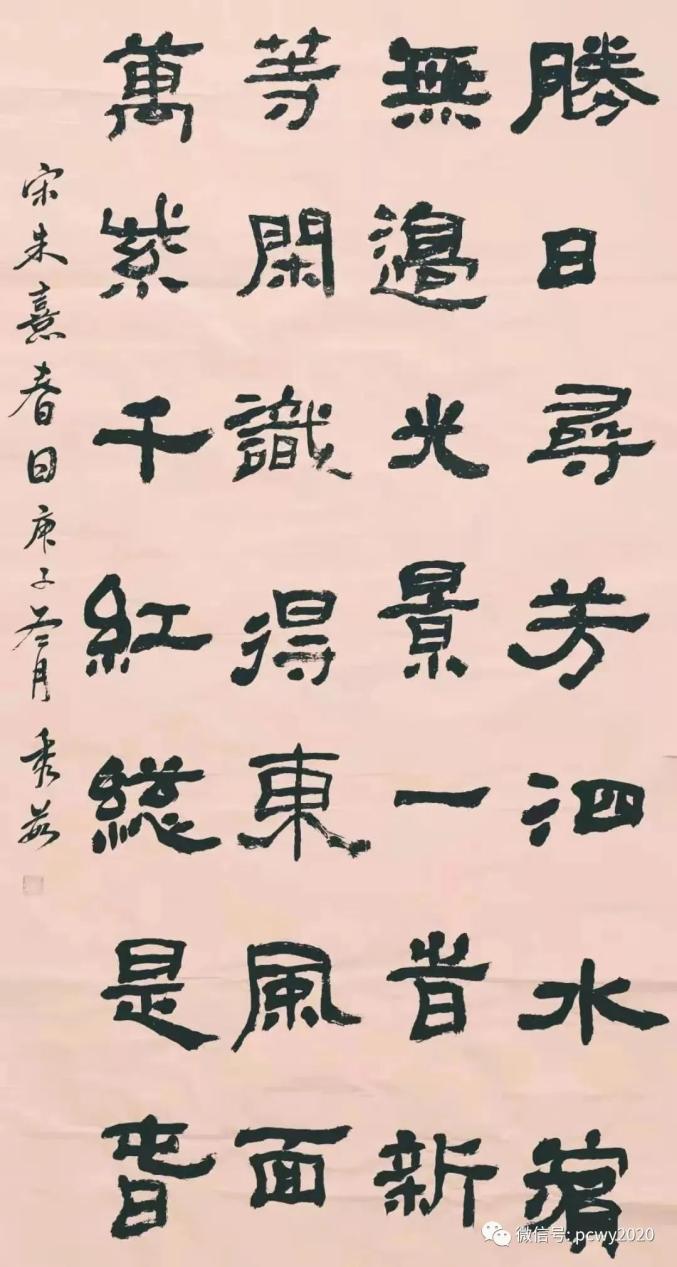 勝日尋芳泗水濱
無邊光景一時新
等閑識得東風面
萬紫千紅総是春
宋朱熹春日庚子冬月秀茹
微信号: pcwy2020